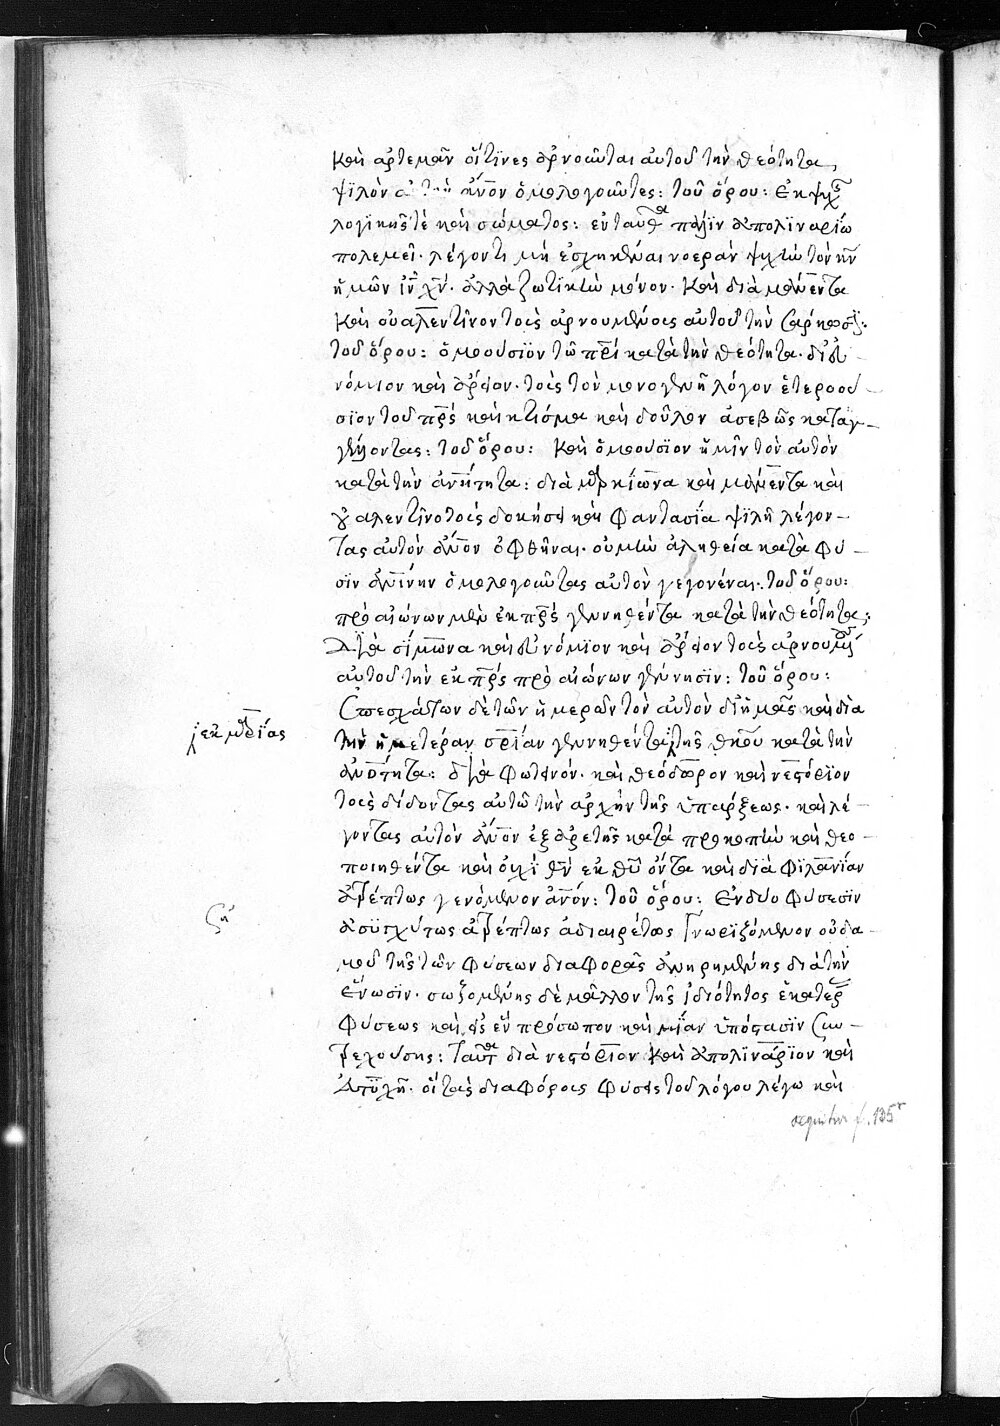 καὶ ἀρτεμᾶν οἵτϊνες ἀρνοῦνται αὐτοῦ τὴν θεότητα,
ψϊλὸν ἄνον ὁμολογοῦντες: τοῦ ὅρου: ἐκ ψχς
λογϊκῆς τὲ καὶ σώματος: ἐνταῦθα πάλϊν ἀπολϊναρίω
πολεμεῖ· λέγοντι μὴ ἐσχηκέναι νοερὰν ψυχὴν τὸν κν
ἡμῶν ιν χν· ἀλλὰ ζωτϊκὴν μόνον· καὶ διὰ μάνεντα
καὶ οὐαλεντῖνον τοὺς ἀρνουμένους αὐτοῦ τὴν σάρκωσϊν:
τοῦ ὅρου: ὁμοούσϊον τῶ πρι κατὰ τὴν θεότητα· δι' εὐ-
νόμιον καὶ ἄρειον· τοὺς τὸν μονογενῆ λόγον ἑτεροού-
σϊον τοῦ πρς καὶ κτίσμα καὶ δοῦλον ἀσεβῶς καταγ-
γέλλοντας: τοῦ ὅρου: καὶ ὁμοούσϊον ἡμῖν τὸν αὐτὸν
κατὰ τὴν ἀνότητα: διὰ μαρκίωνα καὶ μάνεντα καὶ
οὐαλεντῖνο τοὺς δοκήσει καὶ φαντασία ψϊλῆ λέγον-
τας αὐτὸν ἄνον ὀφθῆναι· οὐ μὴν ἀληθεία κατὰ φύ-
σϊν ἀνίνην ὁμολογοῦντας αὐτὸν γεγονέναι· τοῦ ὅρου:
πρὸ αἰώνων μὲν ἐκ πρς γεννηθέντα κατὰ τὴν θεότητα:
διὰ σίμωνα καὶ εὐνόμϊον καὶ ἄρειον τοὺς ἀρνουμένους
αὐτοῦ τὴν ἐκ πρς πρὸ αἰώνων γέννησϊν: τοῦ ὅρου:
ἐπεσχάτων δὲ τῶν ἡμερῶν τὸν αὐτὸν δι' ἡμᾶς καὶ διὰ
τὴν ἡμετέραν σρίαν γεννηθέντα τῆς θκου κατὰ τὴν
ἐκ μρϊας
ἀνότητα: διὰ φωτεινόν· καὶ θεόδωρον καὶ νεστόρϊον
τοὺς δίδοντας αὐτῶ τὴν ἀρχὴν τῆς ὑπάρξεως· καὶ λέ-
γοντας αὐτὸν ἄνον ἐξ ἀρετῆς κατὰ προκοπὴν καὶ θεο-
ποιηθέντα καὶ οὐχὶ θν ἐκ θυ ὄντα καὶ διὰ φϊλανίαν
ἀτρέπτως γενόμενον ἄνον: τοῦ ὅρου: ἐν δύο φύσεσϊν
ζή
ἀσϋγχύτως ἀτρέπτως ἀδιαιρέτως γνωρϊζόμενον οὐδα-
μοῦ τῆς τῶν φύσεων διαφορᾶς ἀνῃρημένης διὰ τὴν
ἕνωσϊν· σωζομένης δὲ μᾶλλον τῆς ϊδιότητος ἑκατέρας
φύσεως καὶ εἰς ἓν πρόσωπον καὶ μϊαν ὑπόστασϊν συν-
τρεχούσης: ταῦτα διὰ νεστόριον καὶ ἀπολϊνάρϊον καὶ
εὐτϋχῆ· οἳ τὰς διαφόρους φύσεις τοῦ λόγου λέγω καὶ
sequitur f. 135r